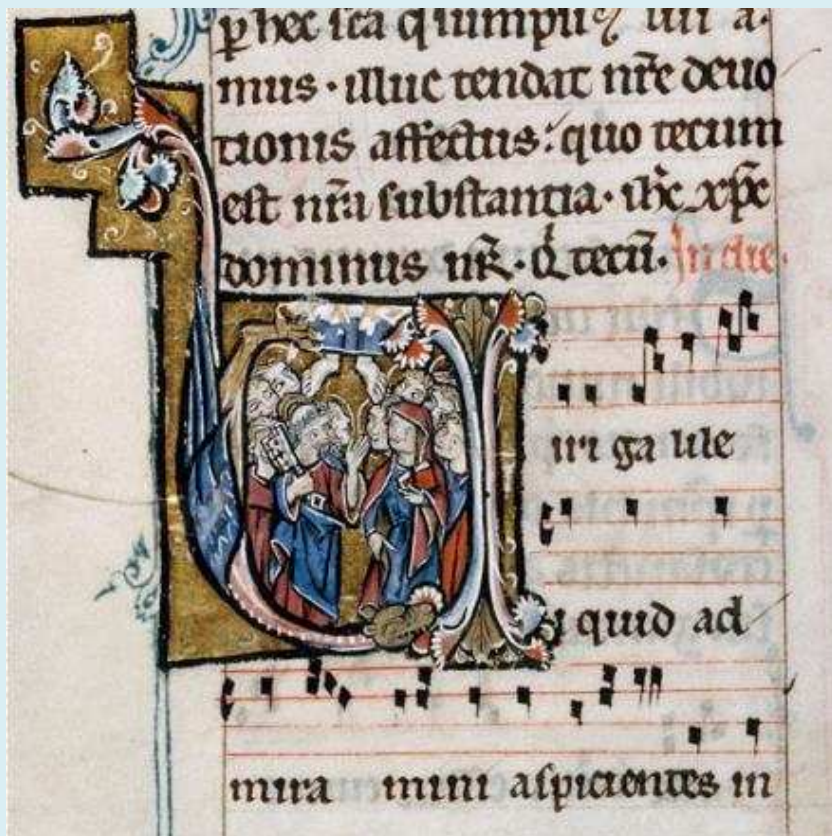 ꝑ hec sca q
mus · illuc tendat nr̄e deuo
tionis affectus: quo tecum
est nr̄a substantia · ih̄c xp̄c
dominus nr̄ · Q tecū · In die ·
Uiri galile
i quid ad
mira mini aspicientes in